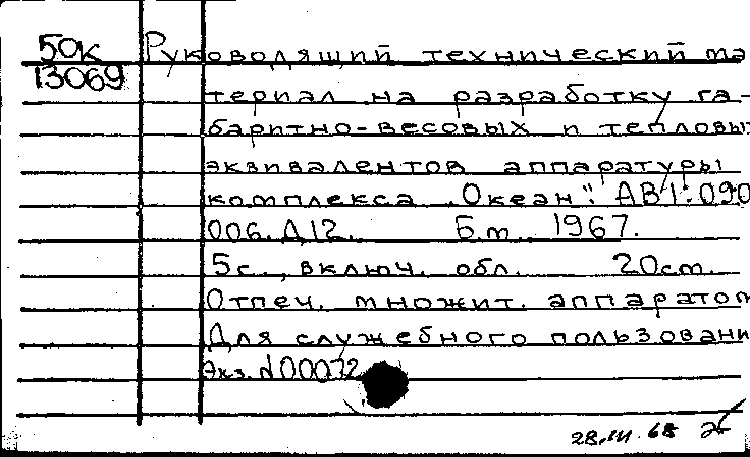 50к Руководящий технический ма
13069
териал на разработку га-
баритно-весовых и тепловы
эквивалентов аппаратуры
комплекса "Океан". АВ1.090
006.Д12. Б.м. 1967.
5с., включ. обл. 20см.
Отпеч. множит. аппаратом
Для служебного пользовани
Экз. №00072
28.III.68